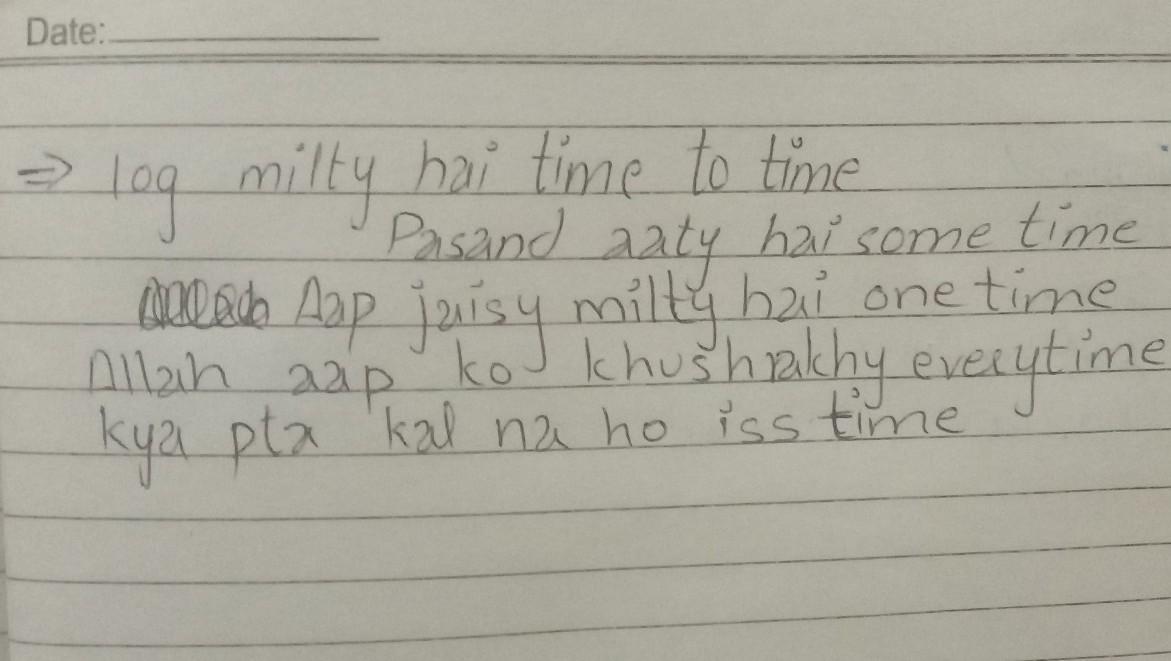 Date:
⇒ log milty hai time to time
Pasand aaty hai some time
Aap jaisy milty hai one time
Allah aap ko khush rakhy everytime
kya pta kal na ho iss time